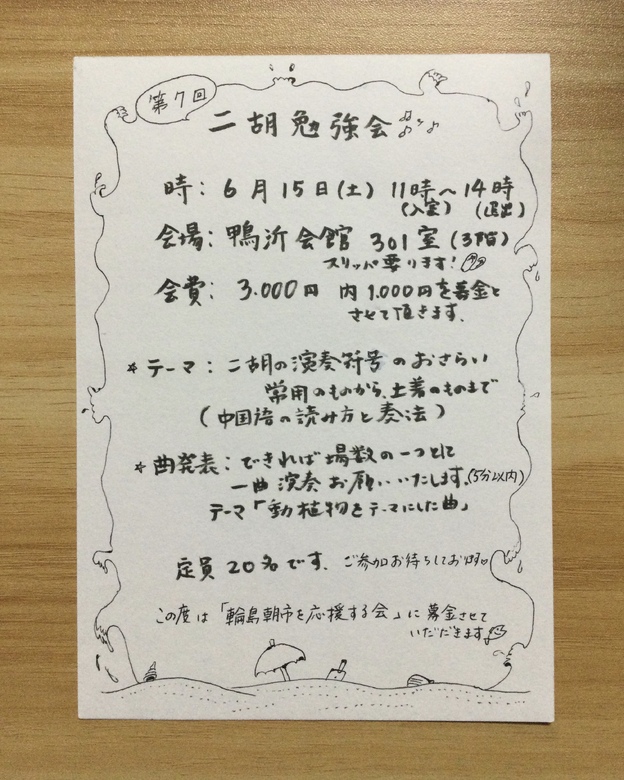 第7回
二胡勉強会
時： 6月15日(土) 11時〜14時
(入室) (退出)
会場： 鴨沂会館 301室(3階)
スリッパ要ります！
会費： 3.000円 内1.000円を募金と
させて頂きます.
* テーマ： 二胡の演奏符号のおさらい
常用のものから、土著のものまで
(中国語の読み方と奏法)
* 曲発表： できれば場数の一つとして
一曲演奏お願いいたします.(5分以内)
テーマ「動植物をテーマにした曲」
定員20名です. ご参加お待ちしております♡
この度は「輪島朝市を応援する会」に募金させて
いただだきます